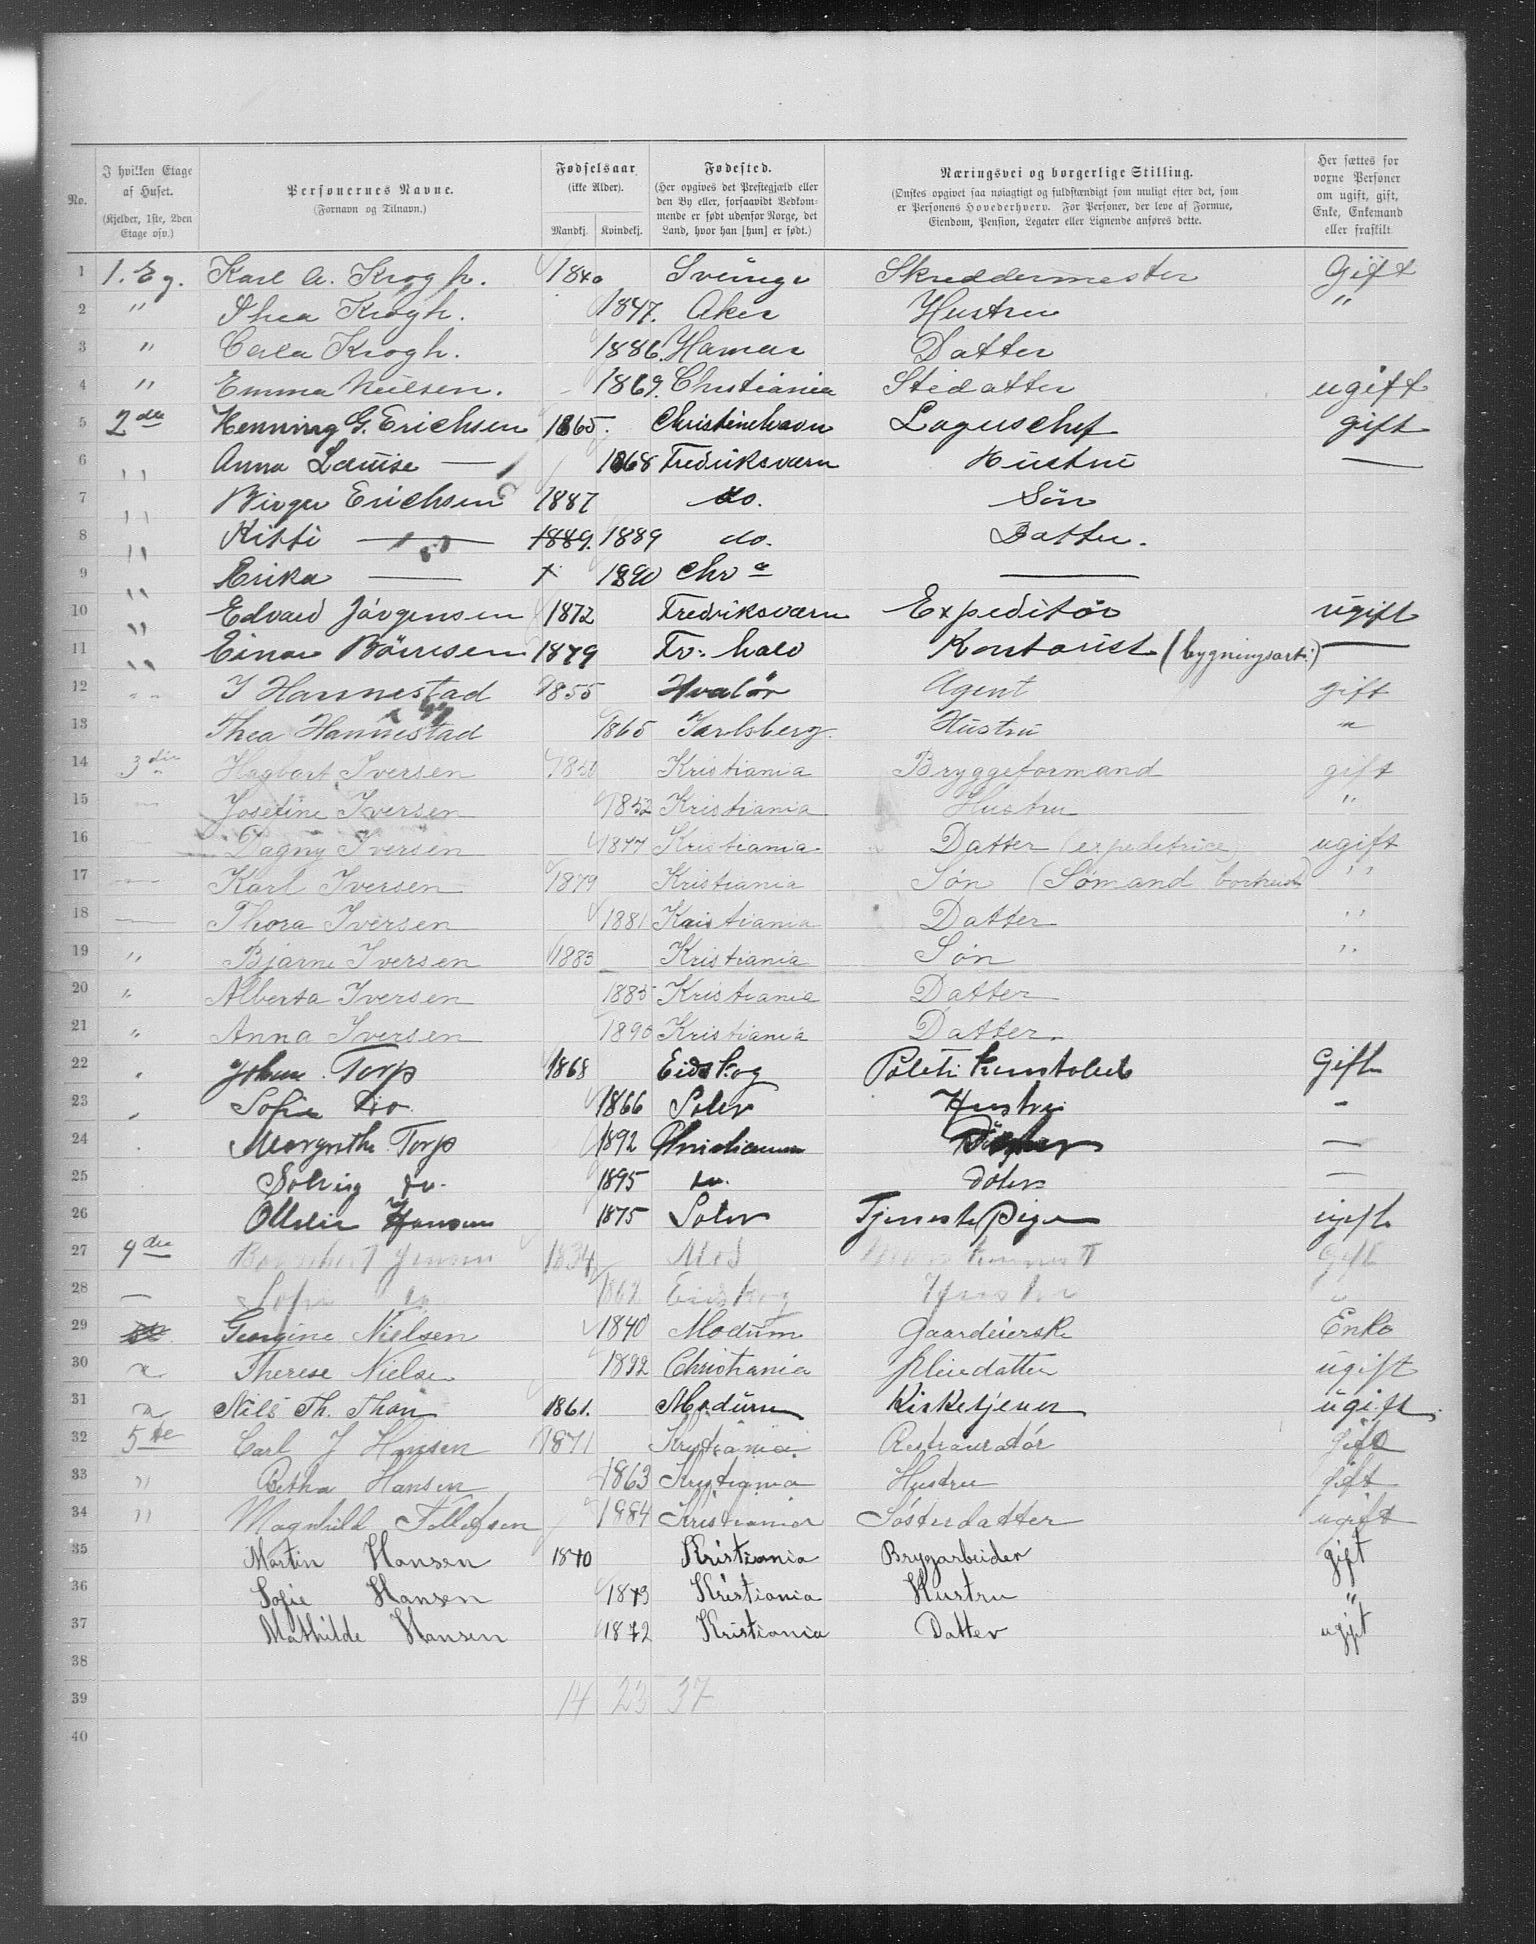 No. | I hvilken Etage af Huset. (Kjelder, 1ste, 2den Etage osv.) | Personernes Navne. (Fornavn og Tilnavn.) | Fødselsaar (ikke Alder). Mandkj. Kvindekj. | Fødested. (Her opgives det Prestegjæld eller den By eller, forsaavidt Vedkommende er født udenfor Norge, det Land, hvor han [hun] er født.) | Næringsvei og borgerlige Stilling. (Ønskes opgivet saa nøiagtigt og fuldstændigt som muligt efter det, som er Personens Hovederhverv. For Personer, der leve af Formue, Eiendom, Pension, Legater eller Lignende anføres dette.) | Her sættes for voxne Personer om ugift, gift, Enke, Enkemand eller fraskilt
1 1. Eg. Karl A. Krogh. 1840 Skreddermester Gift
2 " Thea Krogh. 1847. Aker Hustru "
3 " Krogh. 1886. Hamar Datter
4 " Emma Nielsen. 1869. Christiania Stedatter ugift
5 2den Henning G. Erichsen 1865. Christinehavn Lagerschef gift
6 " Anna Louise — 1868 Fredriksværn Hustru —
7 " Birger Erichsen 1887 do. Søn
8 " Kitti — 1889. 1889 do. Datter.
9 " Erika — 1890 Chr a —
10 " Edvard Jörgensen 1872 Fredriksværn Expeditör ugift
11 " Einar Börresen 1879 Fr: hald Kontorist (bygningsart:) —
12 " J Hannestad 1855 Hvalör Agent gift
13 Thea Hannestad 1865 Jarlsberg. Hustru "
14 3die Hagbart Iversen Kristiania Bryggeformand gift
15 — Josefine Iversen 1852 Kristiania Hustru "
16 — Dagny Iversen 1877 Kristiania Datter (expeditrice) ugift
17 — Karl Iversen 1879 Kristiania Søn (Sömand bortreist) "
18 — Thora Iversen 1881 Kristiania Datter "
19 " Bjarne Iversen 1883 Kristiania Søn "
20 " Alberta Iversen 1885 Kristiania Datter
21 " Anna Iversen 1890 Kristiania Datter.
22 " Johan Torp 1868 Eidskog Politi Kunstabel Gift
23 " Sofie do. 1866 Solør Hustru "
24 Margrethe Torp 1892 Christiania —
25 Solveig do. 1895 do. —
26 Hansen 1875 Solør Tjenestepige ugift
27 4de 1834 Gift
28 — Sofie do 1862 Eidskog Hustru "
29 Georgine Nielsen 1840 Modum Gaardeierske Enke
30 " Therese Nielsen 1892 Christiania Pleiedatter ugift
31 " Nils Th. Thon 1861. Modum Kirketjener ugift.
32 5te Carl J Hansen 1871 Kristiania Restauratör gift
33 " Betha Hansen 1863 Kristiania Hustru gift
34 " Magnhild Tollefsen 1884 Kristiania Sösterdatter ugift
35 Martin Hansen 1840 Kristiania Brygarbeider gift
36 Sofie Hansen 1843 Kristiania Hustru "
37 Mathilde Hansen 1872 Kristiania Datter ugift
38
39 14 23 37
40